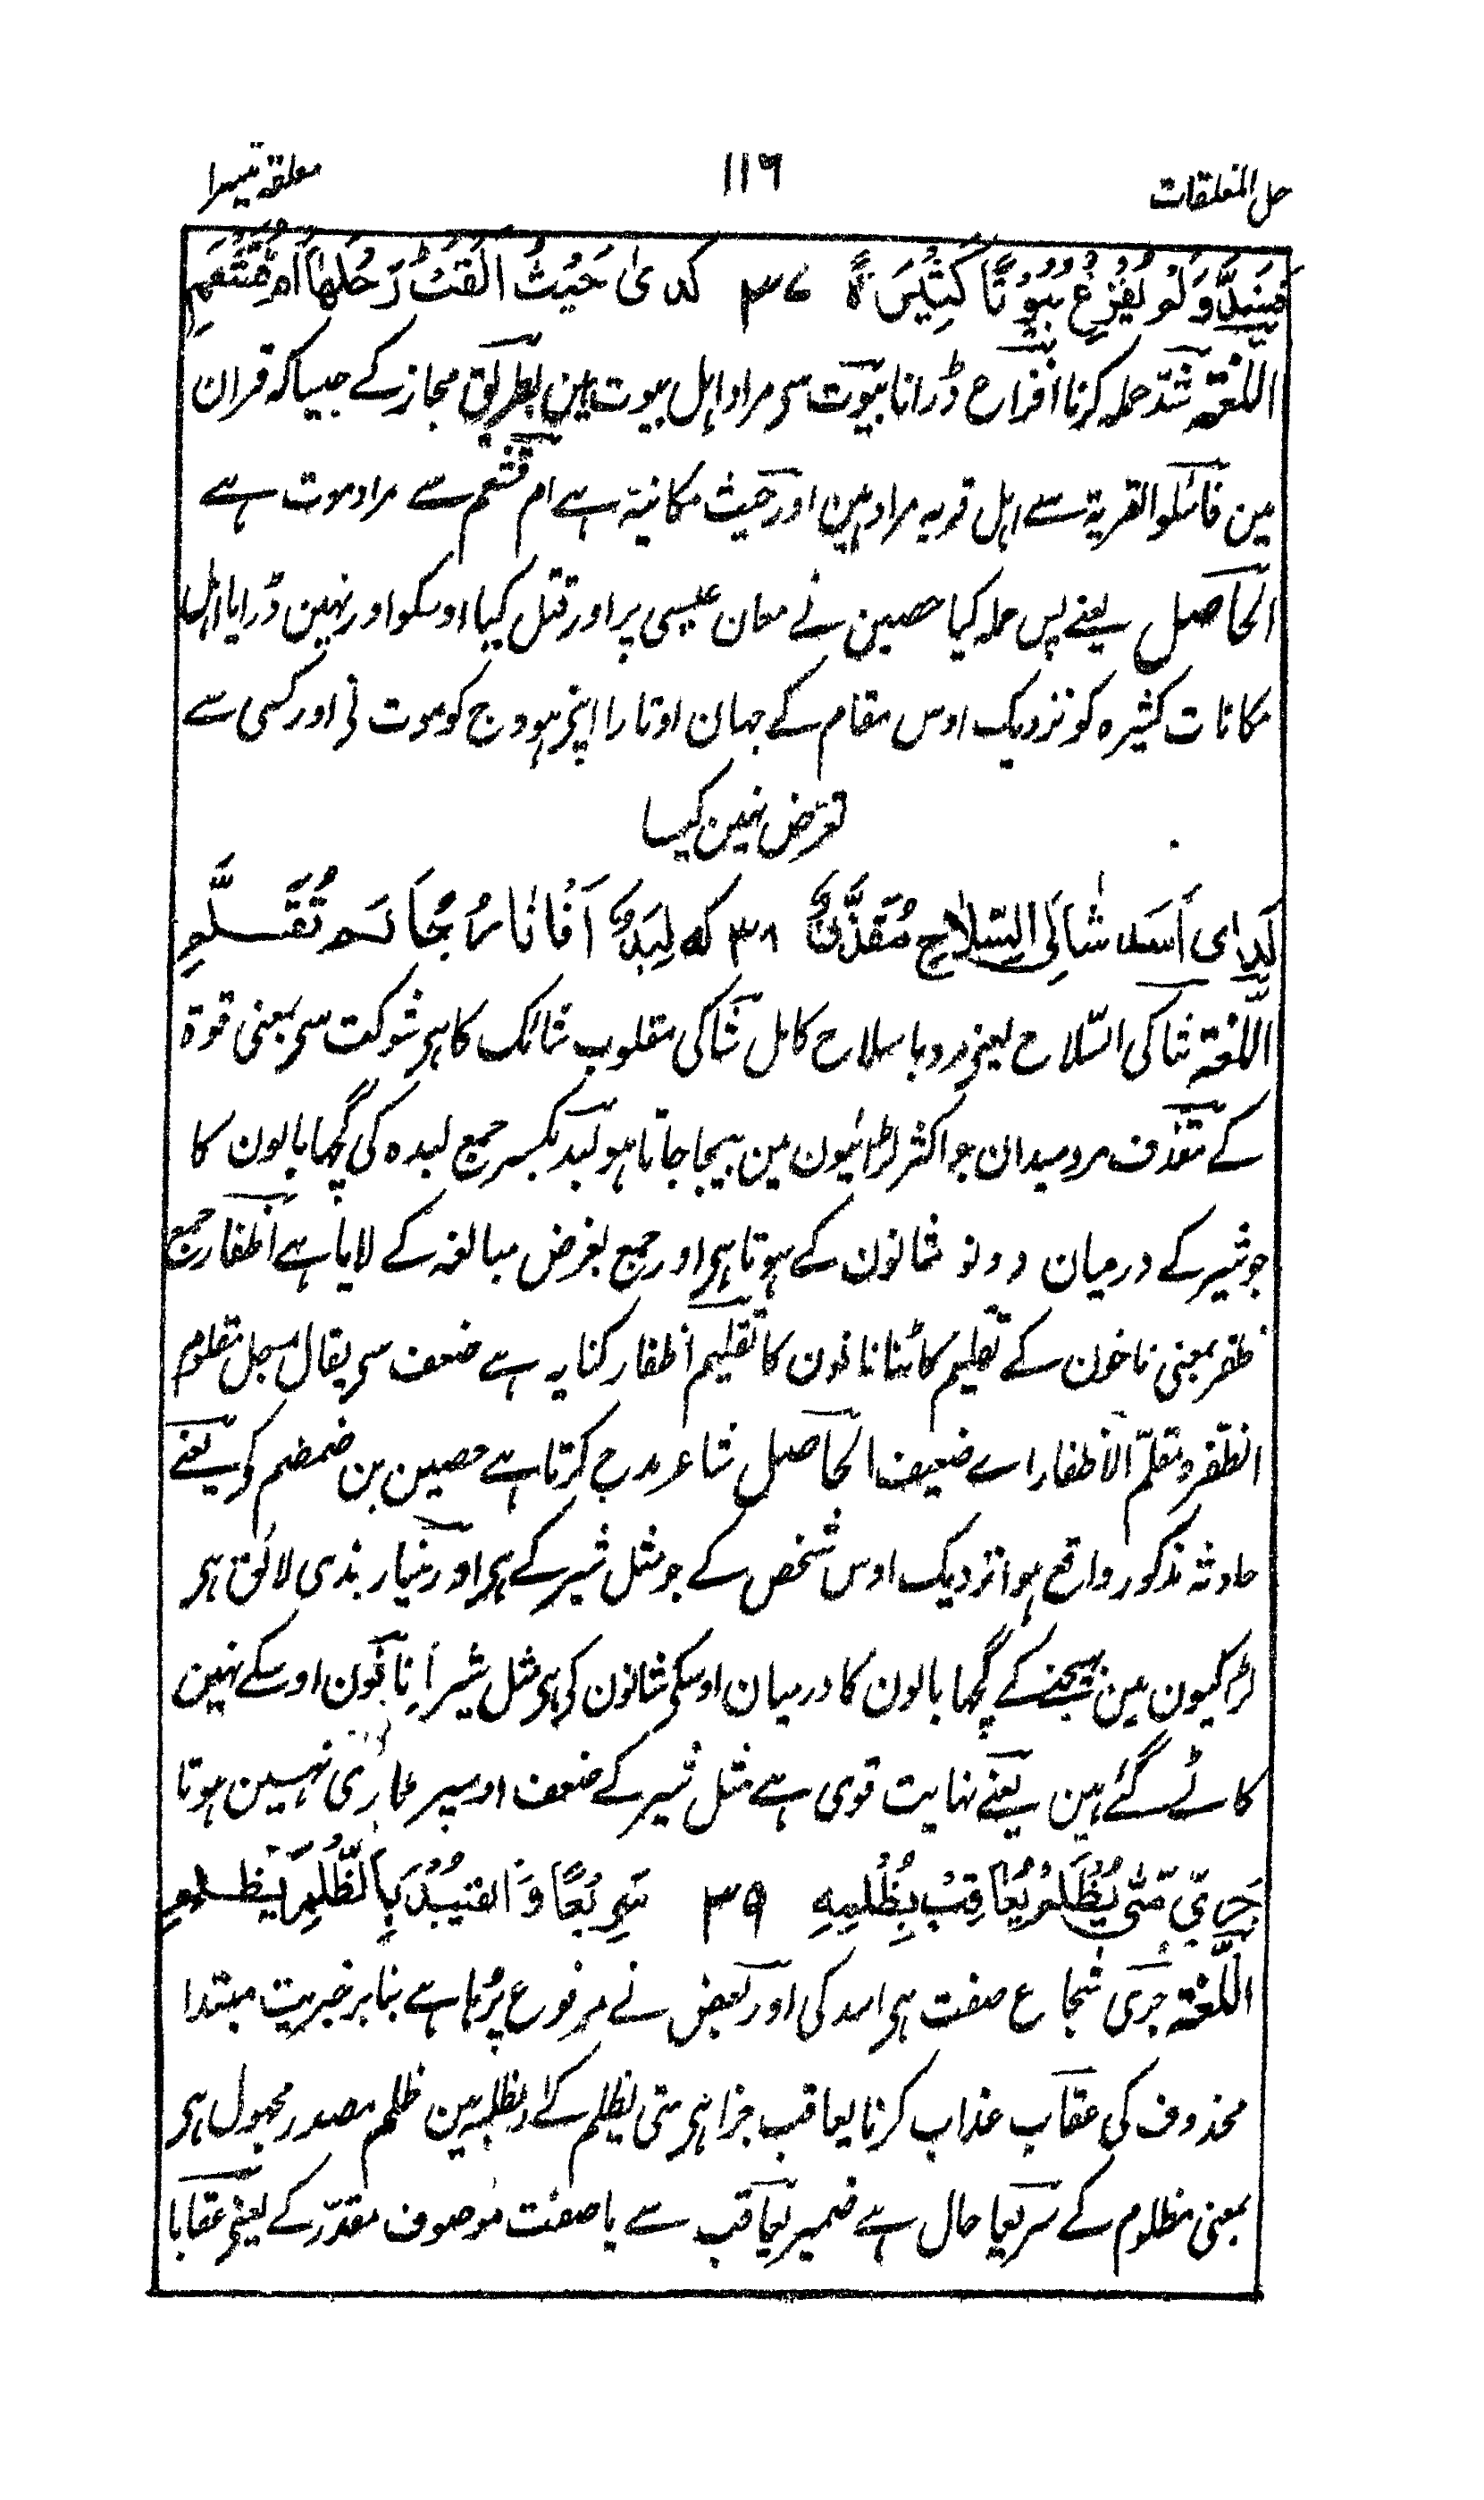 حل المعلقات ۱۱۶ معلقہ تیسرا
فَشَدَّ وَلَمْ يُفْزِعْ بُيُوْتًا كَثِيْرَةً ۳۷ لَدٰی حَيْثُ اَلْقَتْ رَحْلَهَا اُمُّ قَشْعَمِ
اللّغتہ شدّ حملہ کرنا افزاع ڈرانا بیوت سی مراد اہل بیوت ہین بطریق مجاز کے جیساکہ قران
مین فاسئلو القریة سے اہل قریہ مراد ہین اور حیث مکانیہ ہے ام قشعم سے مراد موت ہے
الحاصل یعنے پس حملہ کیا حصین نے مکان عیسی پر اور قتل کیا اوسکو اور نہین ڈرایا اہل
مکانات کثیرہ کو نزدیک اوس مقام کے جہان اوتارا اپنی ہودج کو موت نی اور کسی سے
تعرّض نہین کیا
لَدٰى اَسَدٍ شَاكِي السِّلَاحِ مُقَذَّفٍ ۳۸ لَهٗ لِبَدٌ اَظْفَارُهٗ لَمْ تُقَلَّمِ
اللّغتہ شاکی السّلاح یعنی مرد با سلاح کامل شاکی مقلوب شائک کا ہی شوکت سی بمعنی قوة
کے مقذف مرد میدان جو اکثر لڑائیون مین بھیجا جاتا ہو لبد بکسر جمع لبدہ کی گچھا بالون کا
جو شیر کے درمیان دونو شانون کے ہوتا ہی اور جمع بغرض مبالغہ کے لایا ہے اظفار جمع
ظفر بمعنی ناخون کے تقلیم کاٹنا ناخون کا تقلیم اظفار کنایہ ہے ضعف سی یقال رجل مقلوم
الظّفر و مقلّم الاظفار اے ضعیف الحاصل شاعر مدح کرتا ہے حصین بن ضمضم کو یعنے
حادثہ مذکور واقع ہوا نزدیک اوس شخص کے جو مثل شیر کے ہی اور ہتیار بندی لائق ہی
لڑائیون مین بھیجنے کے گچھا بالون کا درمیان اوسکی شانون کی ہی مثل شیر ناخون اوسکے نہین
کاٹے گئے ہین یعنے نہایت قوی ہے مثل شیر کے ضعف اوسپر طاری نہین ہوتا
جَرِيٍّ مَتٰى يُظْلَمْ يُعَاقِبْ بِظُلْمِهٖ ۳۹ سَرِيْعًا وَاِلَّا يُبْدَ بِالظُّلْمِ يَظْلِمِ
اللّغتہ جری شجاع صفت ہی اسد کی اور بعض نے مرفوع پڑھا ہے بنابر خبریت مبتدا
محذوف کی عقاب عذاب کرنا یعاقب جزا ہی متی یظلم کے اور بظلمہ مین ظلم مصدر مجہول ہی
بمعنی مظلوم کے سریعا حال ہے ضمیر یعاقب سے یا صفت موصوف مقدّر کے یعنی عقابا